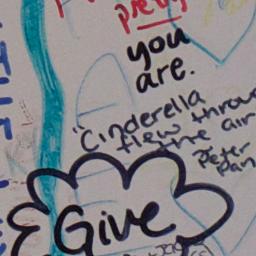 pretty
you
are.
"Cinderella
flew throu
the air
Peter
Pan
Give